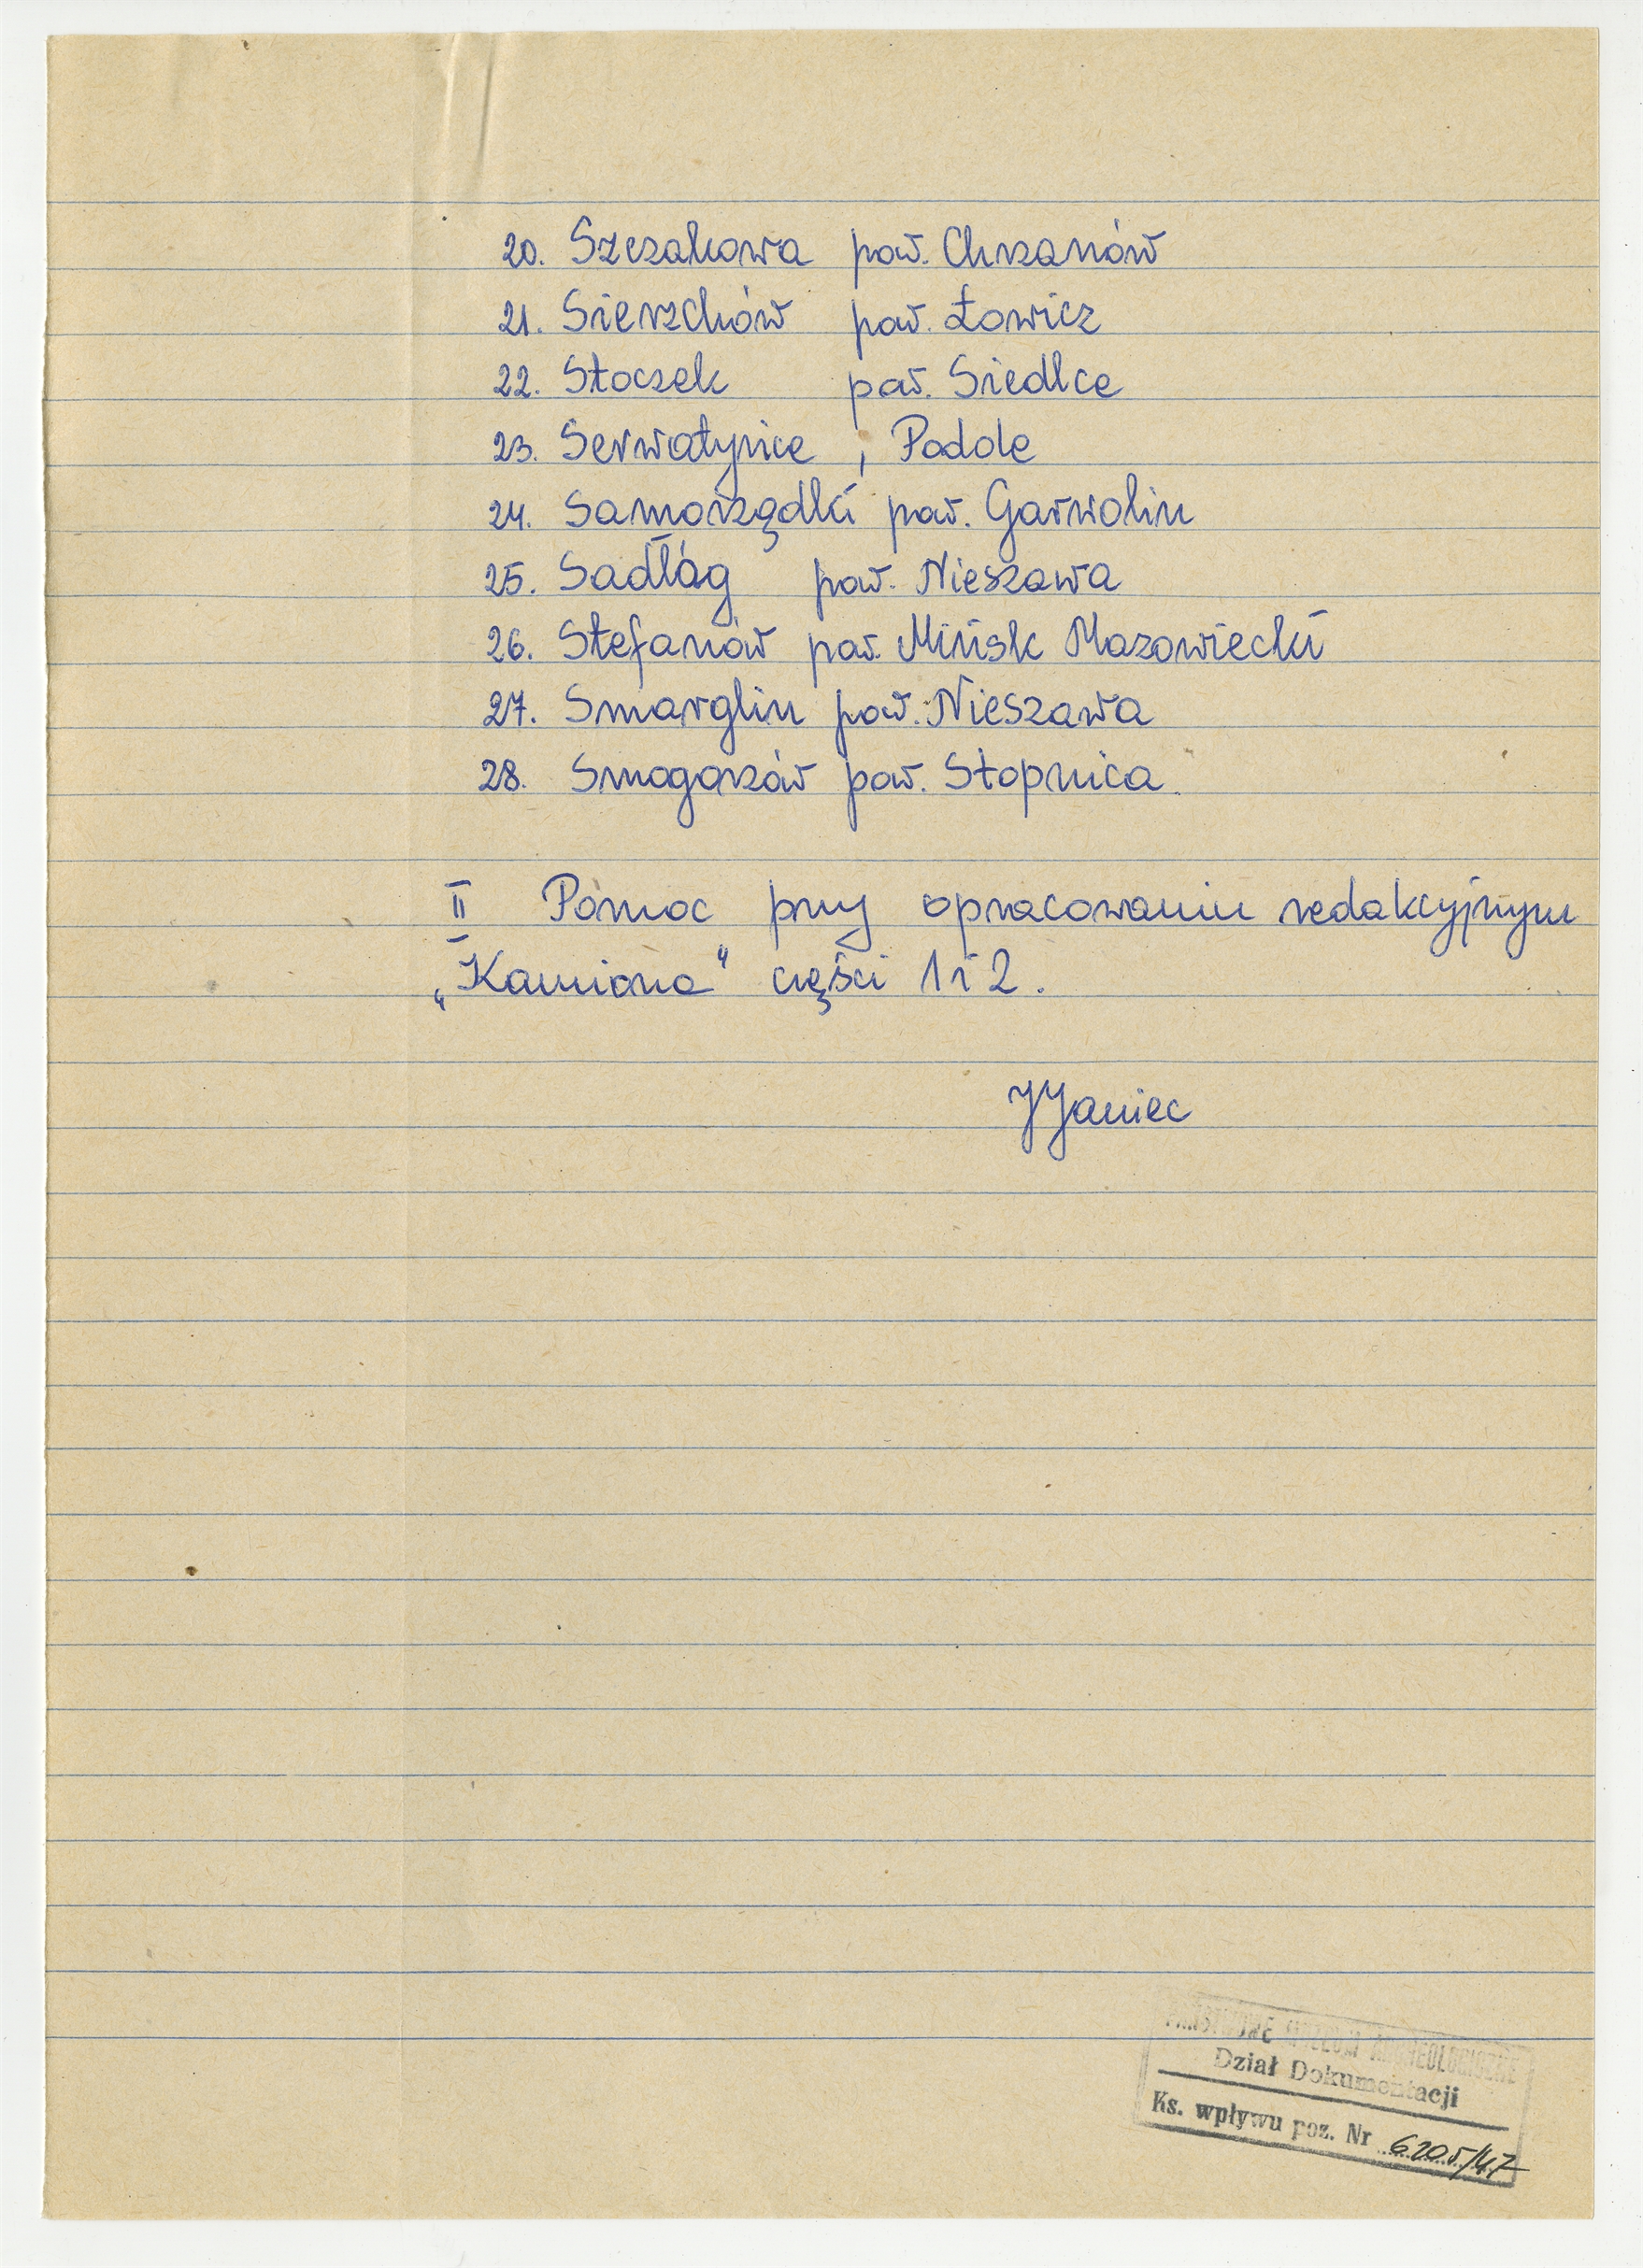 20. Szczakowa pow. Chrzanów
21. Sierzchów pow. Łowicz
22. Stoczek pow. Siedlce
23. Serwatyńce, Podole
24. Samorządki pow. Garwolin
25. Sadłóg pow. Nieszawa
26. Stefanów pow. Mińsk Mazowiecki
27. Smarglin pow. Nieszawa
28. Smogorzów pow. Stopnica.
II Pomoc przy opracowaniu redakcyjnym
„Kamiona" części 1 i 2.
JJaniec
PAŃSTWOWE MUZEUM ARCHEOLOGICZNE
Dział Dokumentacji
Ks. wpływu poz. Nr 6205/47